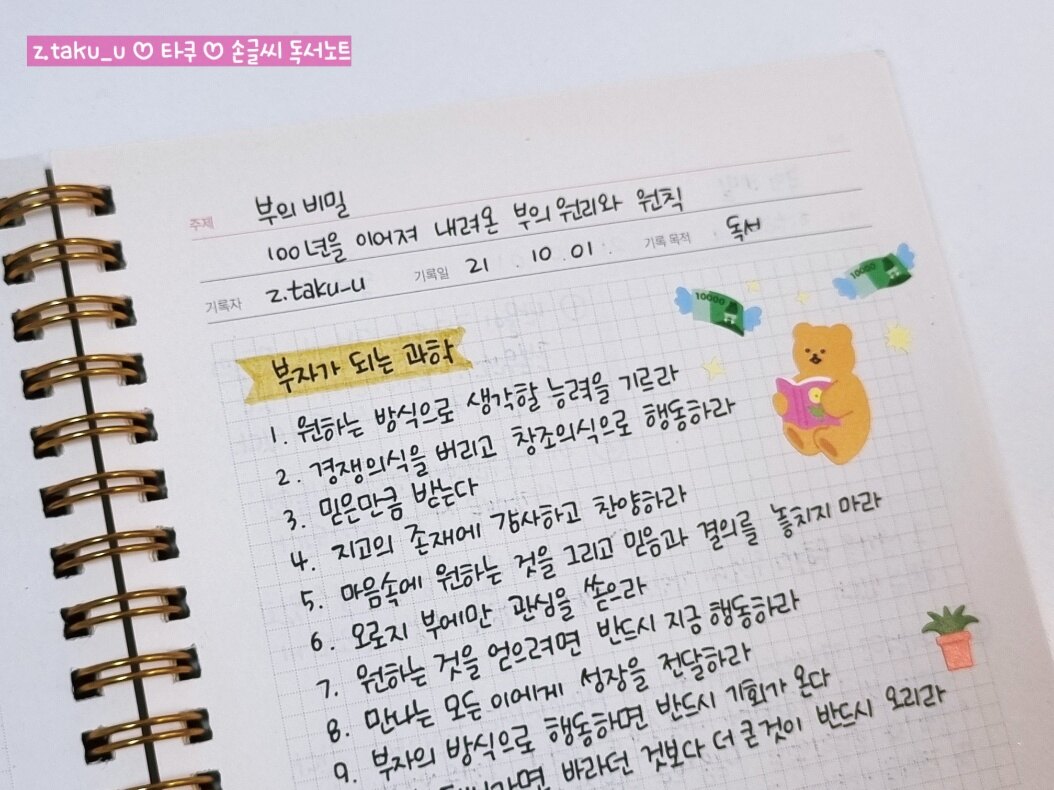 z.taku_u ♡ 타쿠 ♡ 손글씨 독서노트
주제 부의 비밀
100년을 이어져 내려온 부의 원리와 원칙
기록자 z.taku_u 기록일 21. 10. 01. 기록 목적 독서
10000
10000
부자가 되는 과학
1. 원하는 방식으로 생각할 능력을 기르라
2. 경쟁의식을 버리고 창조의식으로 행동하라
3. 믿은만큼 받는다
4. 지고의 존재에 감사하고 찬양하라
5. 마음속에 원하는 것을 그리고 믿음과 결의를 놓치지 마라
6. 오로지 부에만 관심을 쏟으라
7. 원하는 것을 얻으려면 반드시 지금 행동하라
8. 만나는 모든 이에게 성장을 전달하라
9. 부자의 방식으로 행동하면 반드시 기회가 온다
바라던 것보다 더 큰것이 반드시 오리라